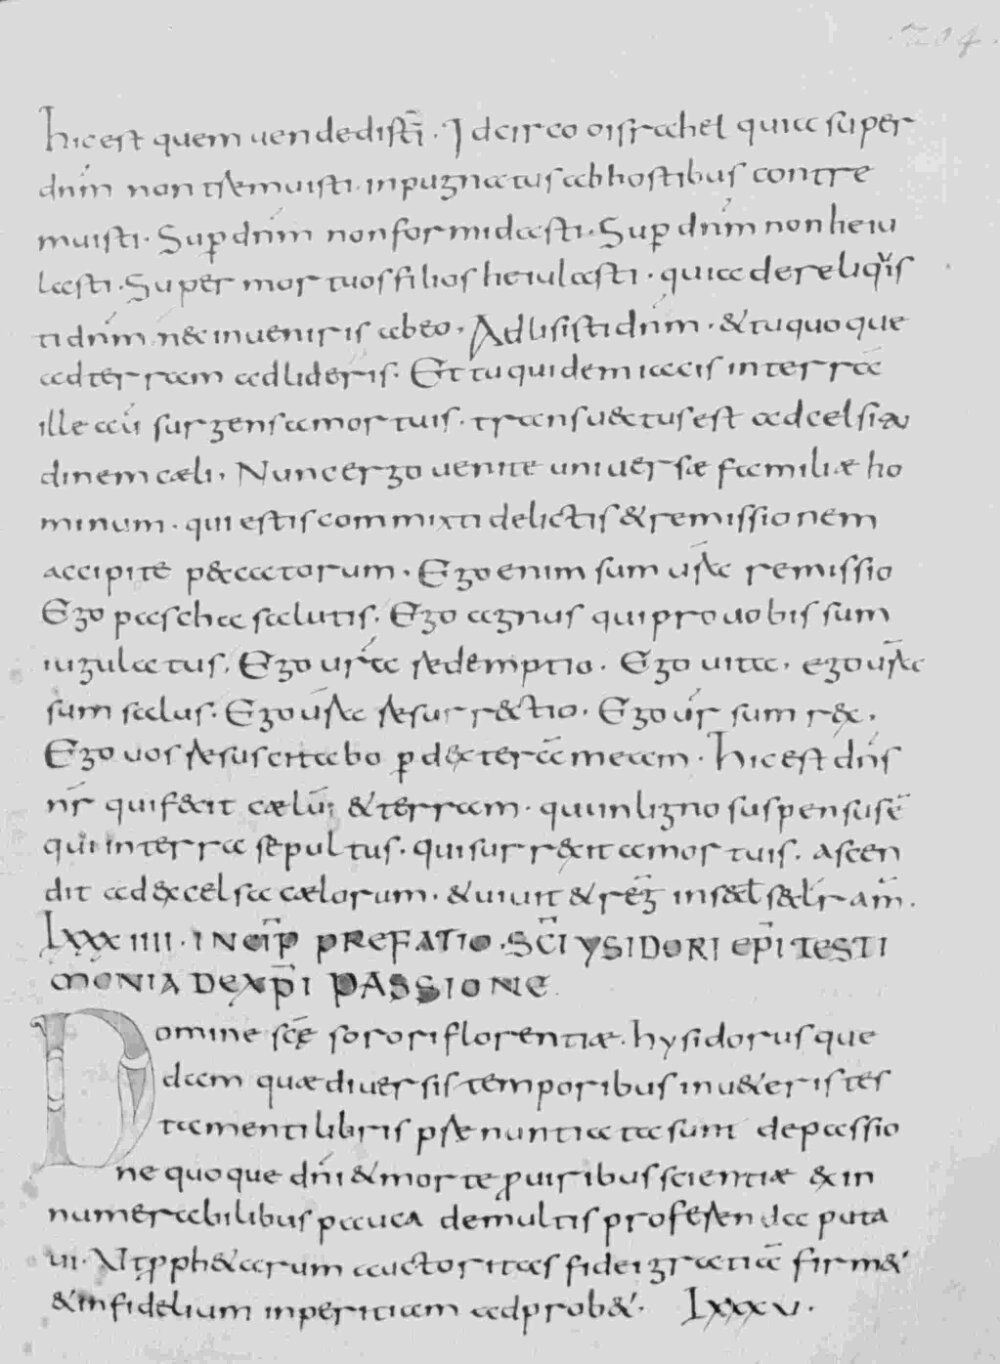 204.
hic est quem uendedisti͞. Idcirco o israhel quia super
dn͞m non tremuisti. inpugnatus ab hostibus contre
muisti. Sup̱ dn͞m non formidasti. Sup̱ dn͞m non heiu
lasti. Super mortuos filios heiulasti. quia dereliq̊is
ti dn͞m n& inueniris ab eo. Adlisisti dn͞m. & tu quoque
ad terram adlideris. Et tu quidem iacis in terra͞
ille au͞ surgens a mortuis. transu&tus est ad celsitu
dinem cæli. Nunc ergo uenite uniuersæ familiæ ho
minum. qui estis commixti delictis & remissionem
accipite p&catorum. Ego enim sum ur͞a remissio
Ego pascha salutis. Ego agnus qui pro uobis sum
iugulatus. Ego ur͞a redemptio. Ego uita. ego ur͞a
sum salus. Ego ur͞a resurr&tio. Ego ur͞ sum r&x.
Ego uos resuscitabo p̱ d&xtera͞ meam. hic est dn͞s
nr͞ qui f&cit cælu͞ & terram. qui in ligno suspensus e͞
qui in terra sepultus. qui surr&xit a mortuis. ascen
dit ad &xcelsa cælorum. & uiuit & reg͞ in sæl͞ sælr͞ am͞.
lxxxiiii. INCIP͞ PREFATIO. SC͞I YSIDORI EP͞I TESTI
MONIA DE XP͞I PASSIONE.
Domine sc͞ę sorori florentiæ. hysidorus que
dam quæ diuersis temporibus in u&eris tes
tamenti libris prenuntiata sunt de passio
ne quoque dn͞i & morte p̱ uiribus scientiæ &x in
numerabilibus pauca de multis proferenda puta
ui. Ut p̱ph&arum auctoritas fidei gratia͞ firm&
& infidelium inperitiam adprob&. lxxxv.